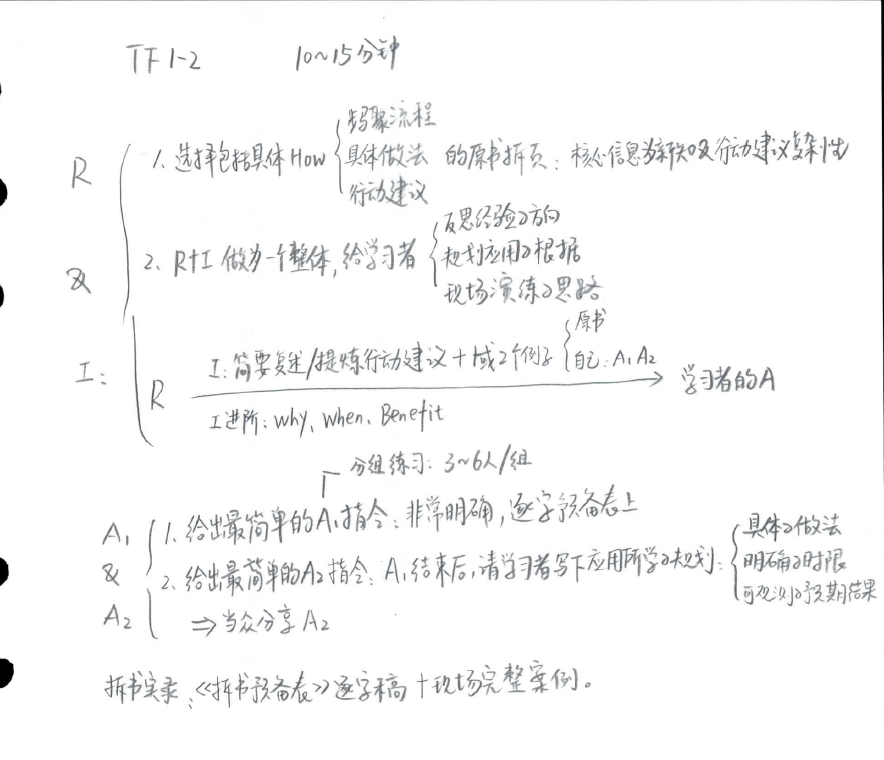 TF1-2 10~15分钟
步骤流程
R 1、选择包括具体How 具体做法 的原书拆页：核心信息为新知及行动建议复杂性
行动建议
反思经验之方向
& 2、R+I 做为一个整体，给学习者 规划应用之根据
现场演练之思路
原书
I: I:简要复述/提炼行动建议+1或2个例子 自己：A1 A2
R 学习者的A
I进阶：Why、When、Benefit
分组练习：3~6人/组
A1 1、给出最简单的A1指令：非常明确，逐字预备表上
具体之做法
& 2、给出最简单的A2指令：A1结束后，请学习者写下应用所学之规划： 明确之时限
可观测之预期结果
A2 ⇒当众分享A2
拆书实录：《拆书预备表》逐字稿+现场完整案例。